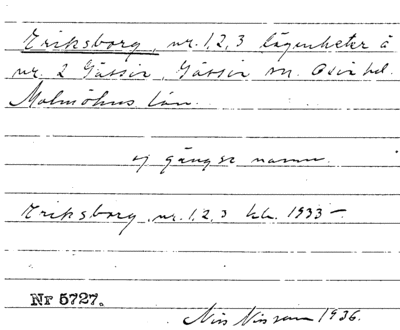 Eriksborg, nr. 1, 2, 3 lägenheter å
nr. 2 Gässie, Gässie sn. Oxie hd.
Malmöhus län.
ej gängse namn.
Eriksborg, nr. 1, 2, 3 kk. 1933 –
Nr 5727.
Nils Nilsson 1936.